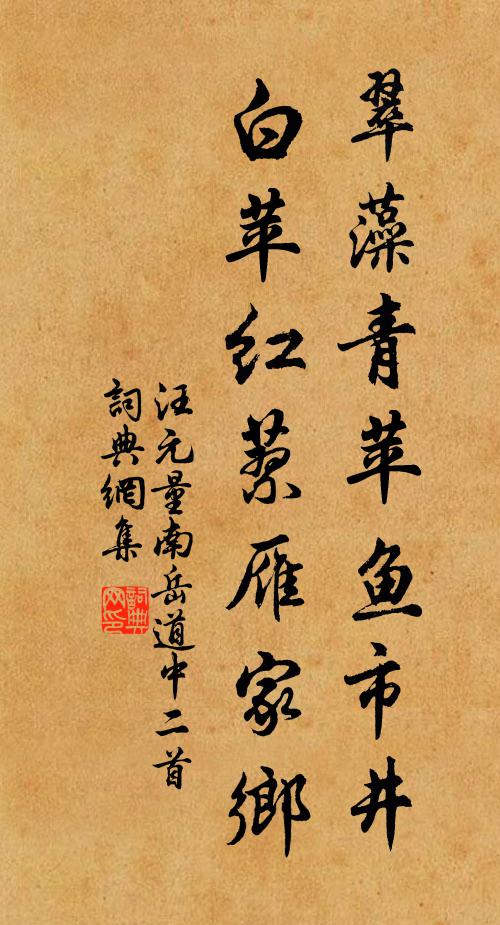 翠藻青苹鱼市井
白苹红蓼雁家鄉
汪元量南岳道中二首
詞典網集
詞典网印